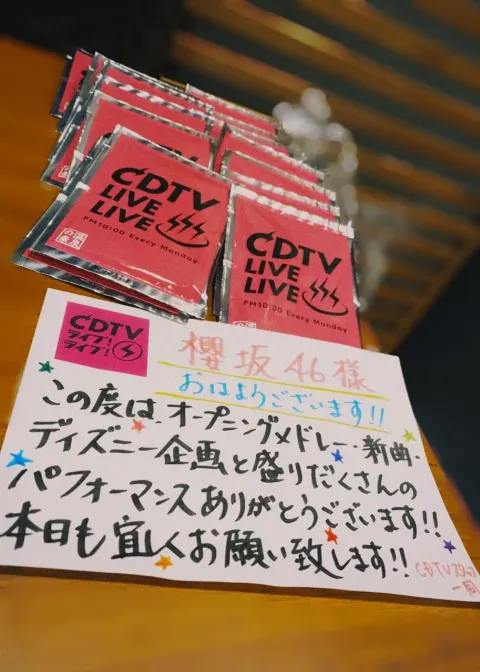 CDTV
LIVE
LIVE
PM10:00 Every Monday
CDTV
LIVE
LIVE
PM10:00 Every Monday
CDTV
ライブ!
ライブ!
櫻坂46様
おはようございます!!
この度は、オープニングメドレー・新曲・
ディズニー企画と盛りだくさんの
パフォーマンスありがとうございます!!
本日も宜しくお願い致します!!
CDTVスタッフ
一同